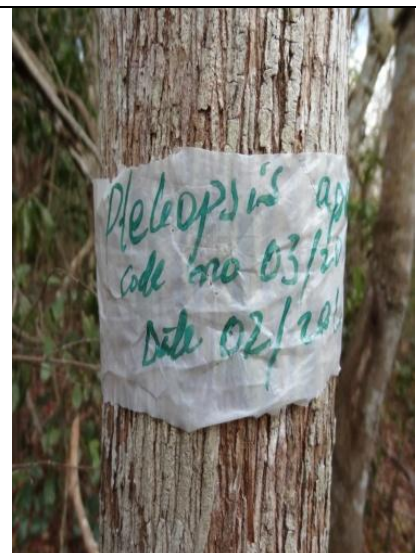 Pleleopsis ap
code no 03/20
Date 02/20